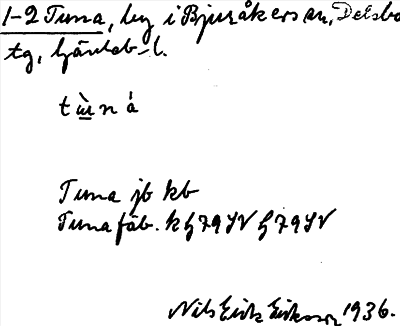 1-2 Tuna, by i Bjuråkers sn, Delsbo
tg, Gävleb. l.
tùn á
Tuna jb kb
Tuna fäb. k G79SV G79SV
Nils Erik Eriksson 1936.